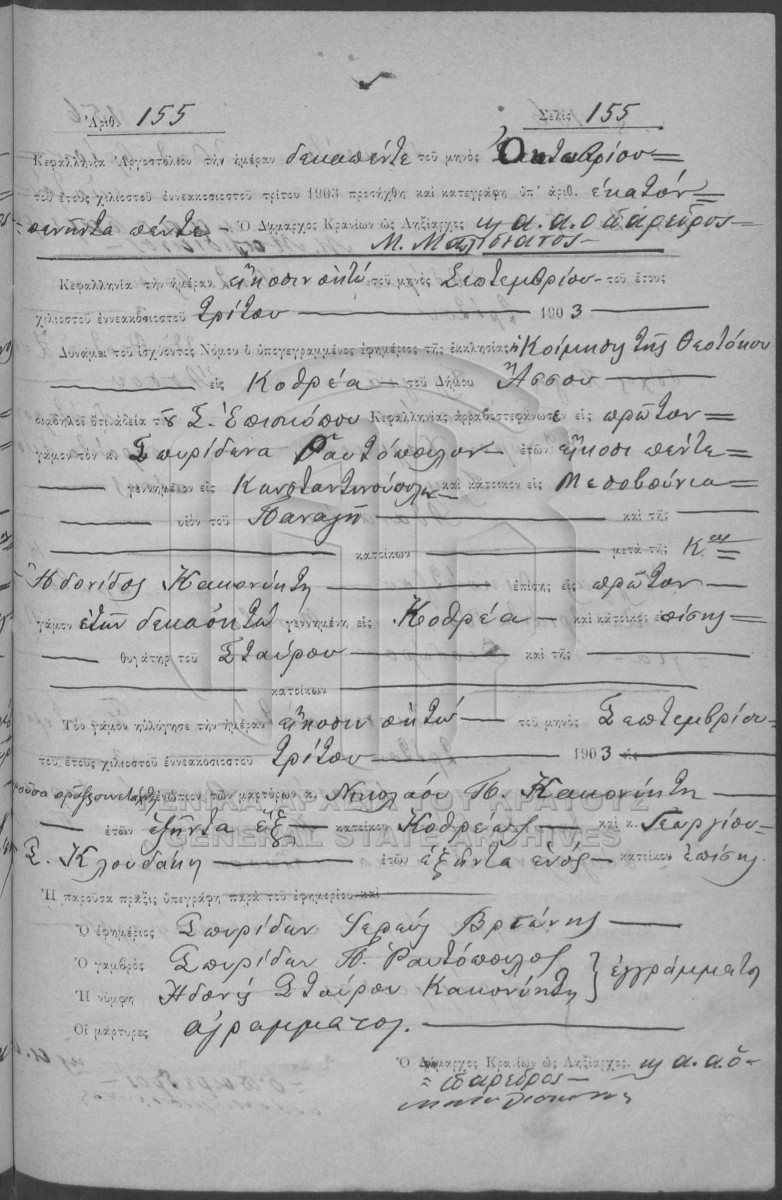 Ἀριθ. 155 Σελὶς 155
Κεφαλληνία Ἀργοστόλιον τὴν ἡμέραν δεκαπέντε τοῦ μηνὸς Ὀκτωβρίου
τοῦ ἔτους χιλιοστοῦ ἐννεακοσιοστοῦ τρίτου 1903 προσήχθη καὶ κατεγράφη ὑπ' ἀριθ. ἑκατὸν
πεντήντα πέντε - Ὁ Δήμαρχος Κρανίων ὡς Ληξίαρχος κ α. α. ὁ πάρεδρος
Κεφαλληνία τὴν ἡμέραν εἴκοσιν ὀκτώ τοῦ μηνὸς Σεπτεμβρίου τοῦ ἔτους
χιλιοστοῦ ἐννεακοσιοστοῦ τρίτου 1903
Δυνάμει τοῦ ἰσχύοντος Νόμου ὁ ὑπογεγραμμένος ἐφημέριος τῆς ἐκκλησίας ἡ Κοίμησις τῆς Θεοτόκου
εἰς Κοθρέα τοῦ Δήμου Ἄσσου
διαδηλοῖ ὅτι ἀδείᾳ τοῦ Σ. Ἐπισκόπου Κεφαλληνίας ἀρραβοστεφάνωσε εἰς πρῶτον
γάμον τὸν κ. Σπυρίδωνα Ραυτόπουλον ἐτῶν εἴκοσι πέντε
γεννημένον εἰς Κωνσταντινούπολιν καὶ κάτοικον εἰς Μεσοβούνια
υἱὸν τοῦ Παναγῆ καὶ τῆς
κατοίκων μετὰ τῆς Κας
Ἡδονίδος Κακονύκτη ἐπίσης εἰς πρῶτον
γάμον ἐτῶν δεκαοκτώ γεννημένη εἰς Κοθρέα καὶ κάτοικος ἐπίσης
θυγάτηρ τοῦ Σταύρου καὶ τῆς
κατοίκων
Τὸν γάμον ηὐλόγησε τὴν ἡμέραν εἴκοσιν ὀκτώ τοῦ μηνὸς Σεπτεμβρίου
τοῦ ἔτους χιλιοστοῦ ἐννεακοσιοστοῦ τρίτου 1903 εἰς
ἐνώπιον τῶν μαρτύρων κ. Νικολάου Π. Κακονύκτη
ἐτῶν ἑξήντα ἕξ κατοίκου Κοθρέας καὶ κ. Γεωργίου
Σ. Κλουδάκη ἐτῶν ἑξήντα ἑνός κατοίκου ἐπίσης.
Ἡ παροῦσα πράξις ὑπεγράφη παρὰ τοῦ ἐφημερίου καὶ
Ὁ ἐφημέριος Σπυρίδων Ἱερεύς
Ὁ γαμβρὸς Σπυρίδων Π. Ραυτόπουλος } ἐγγράμματοι
Ἡ νύμφη Ἡδονίς Σταύρου Κακονύκτη
Οἱ μάρτυρες ἀγράμματοι.
Ὁ Δήμαρχος Κρανίων ὡς Ληξίαρχος. κ α. α. ὁ
πάρεδρος
ΓΕΝΙΚΑ ΑΡΧΕΙΑ ΤΟΥ ΚΡΑΤΟΥΣ
GENERAL STATE ARCHIVES